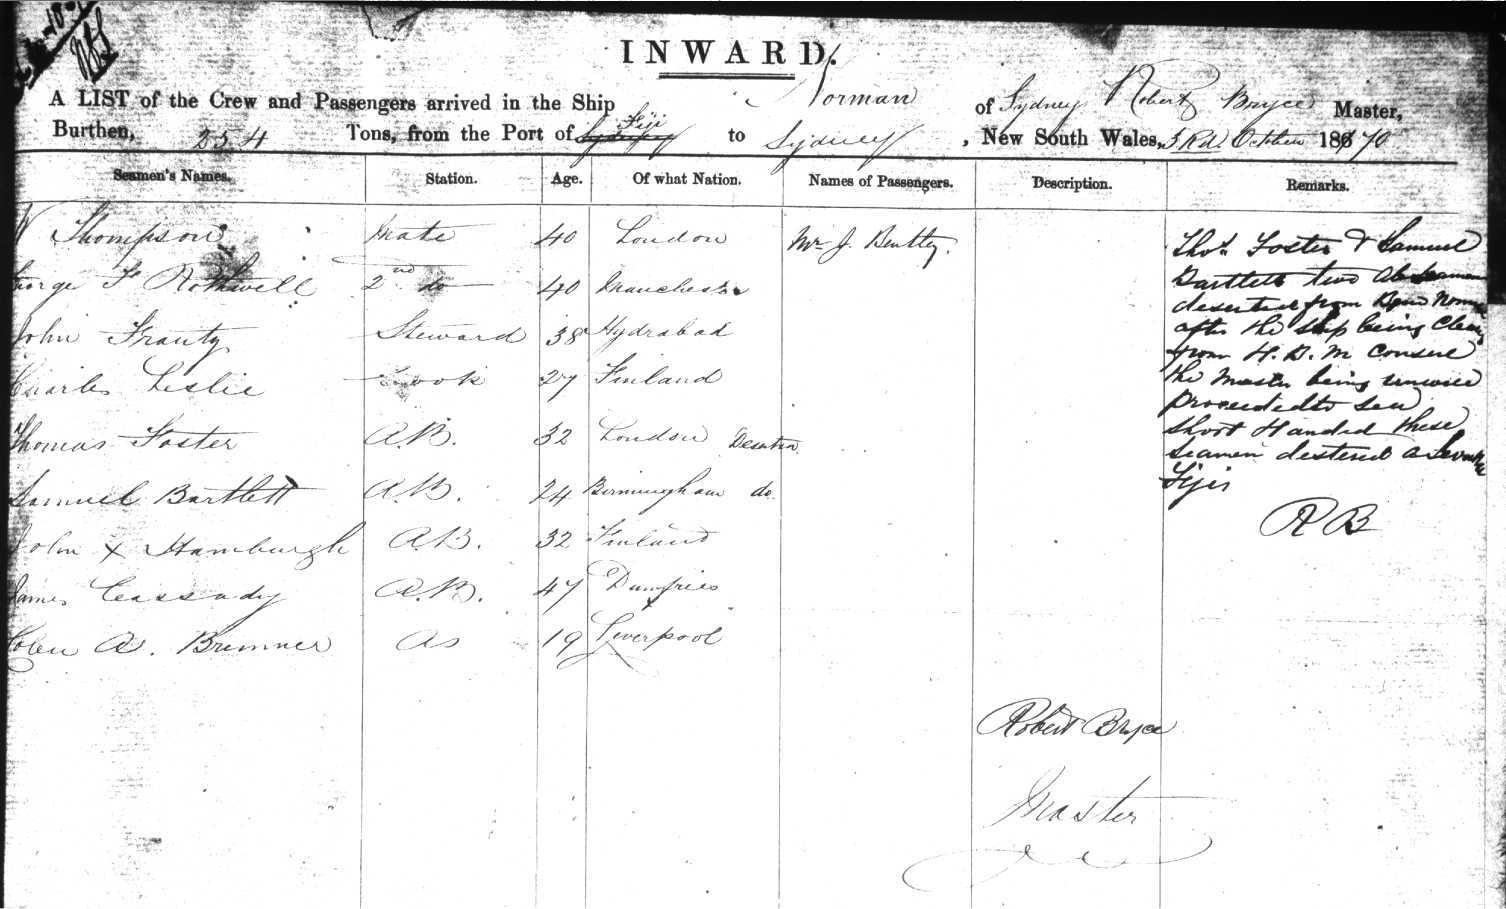 INWARD.
A LIST of the Crew and Passengers arrived in the Ship Norman of Sydney Robert Bryce Master,
Burthen, 254 Tons, from the Port of Fiji to Sydney, New South Wales, 3Rd October 1870
Seamen's Names. Station. Age. Of what Nation. Names of Passengers. Description. Remarks.
W Thompson Mate 40 London Mr J. Bentley.
George F Rothwell 2nd do 40 Manchester
John Frauty Steward 38 Hydrabad
Charles Leslie Cook 27 Finland
Thomas Foster A.B. 32 London
Samuel Bartlett A.B. 24 Birmingham do
John X Hamburgh A.B. 32 Finland
James Cassady A.B. 47 Dumfries
A. Bremner 19 Liverpool
Thos Foster & Samuel
Bartlett two Ab Seamen
deserted from
after the ship being Clear
from H. B. M Consul
the Master being
to sea
Short Handed these
Seamen
Fijis
R B
Robert Bryce
Master